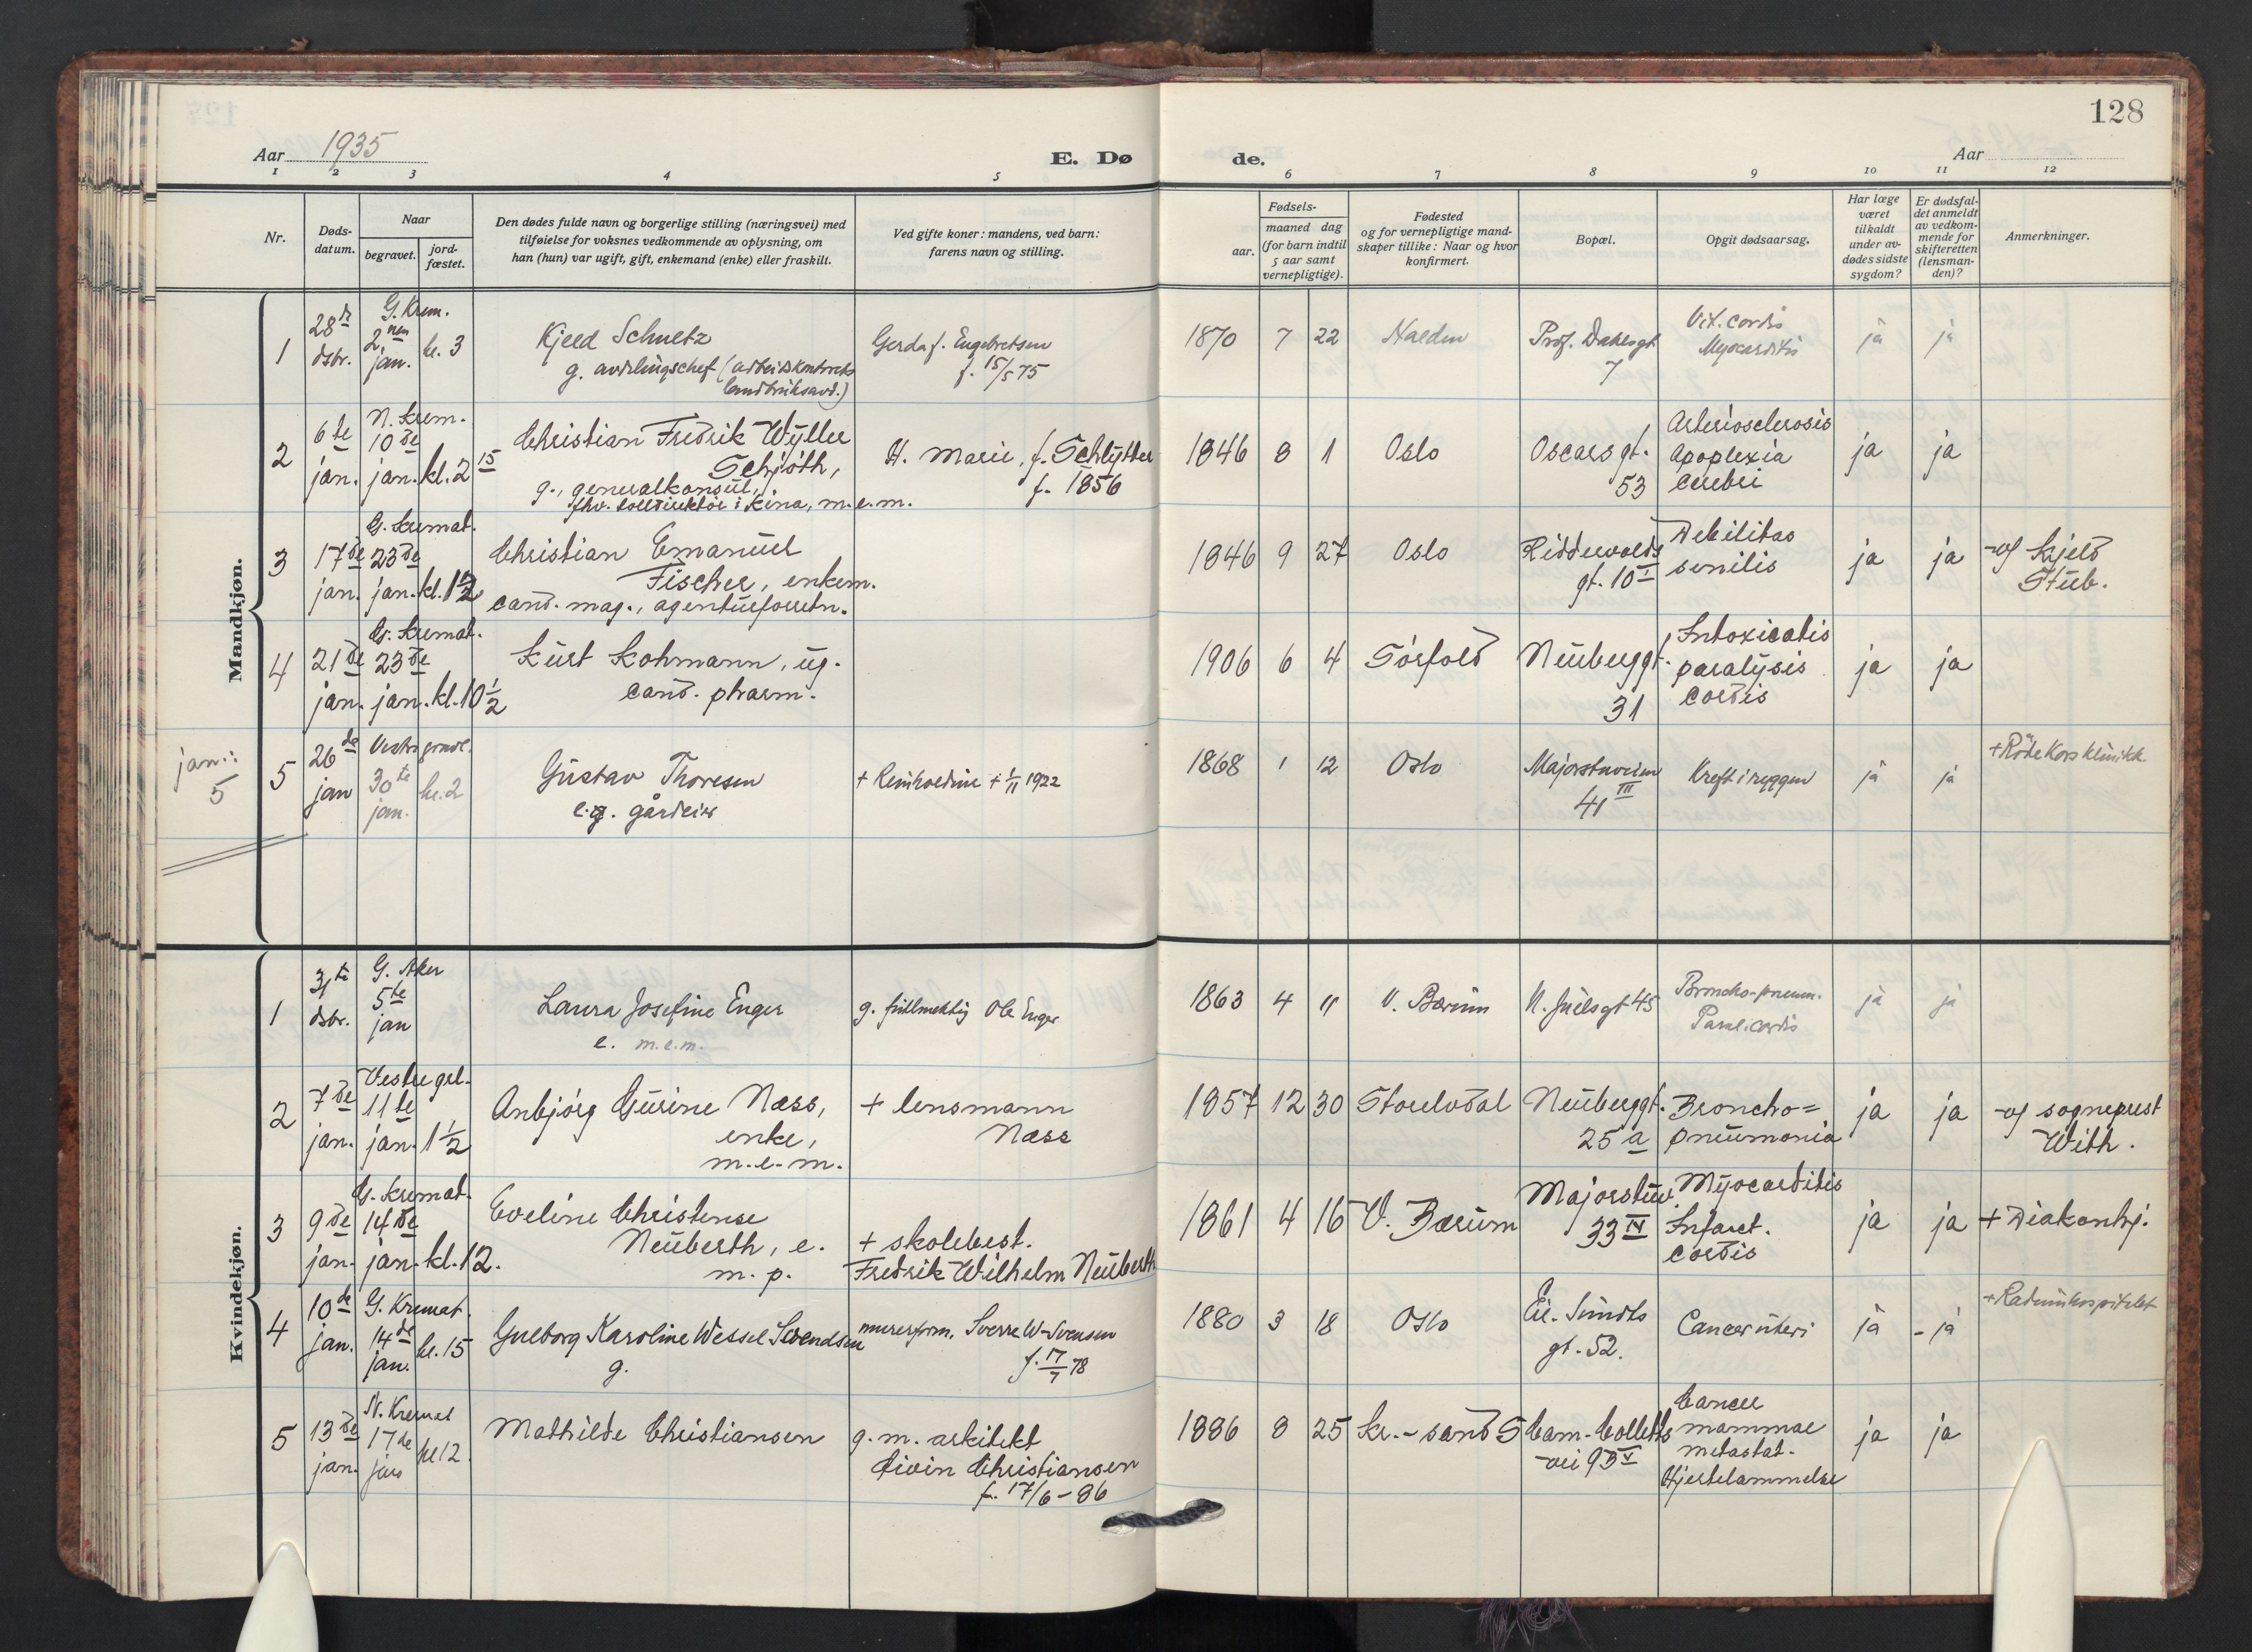 128
Aar 1935
E. Dø
de.
Aar
1 2 3 4 5 6 7 8 9 10 11 12
Nr.
Døds-
datum.
Naar
begravet.
jord-
fæstet.
Den dødes fulde navn og borgerlige stilling (næringsvei) med
tilføielse for voksnes vedkommende av oplysning, om
han (hun) var ugift, gift, enkemand (enke) eller fraskilt.
Ved gifte koner: mandens, ved barn:
farens navn og stilling.
Fødsels-
aar.
maaned dag
(for barn indtil
5 aar samt
vernepligtige).
Fødested
og for vernepligtige mand-
skaper tillike: Naar og hvor
konfirmert.
Bopæl.
Opgit dødsaarsag.
Har læge
været
tilkaldt
under av-
dødes sidste
sygdom?
Er dødsfal-
det anmeldt
av vedkom-
mende for
skifteretten
(lensman-
den)?
Anmerkninger.
Mandkjøn.
1
28de
dsbr.
G. Krem.
2nen
jan.
kl. 3
Kjeld Schultz
g. avdelingschef (arbeidskontorets
landbruksavd.)
Gerda f. Engebretsen
f. 15/5 75
1870 7 22
Halden
Prof. Dahlsgt
7
Vit. cordis
Myocarditis
ja
ja
2
6te
jan.
N. Krem.
10de
jan.
kl. 2 15
Christian Fredrik Wyller
Schjöth,
g., generalkonsul,
fhv. tolldirektör i Kina, m.e.m.
H. Marie, f. Schlytter
f. 1856
1846 8 1
Oslo
Oscarsgt.
53
Arteriosclerosis
Apoplexia
cerebri
ja
ja
3
17de
jan.
G. Kremat.
23de
jan.
kl. 1 1/2
Christian Emanuel
Fischer, enkem.
cand. mag., agenturforretn.
1846 9 27
Oslo
Riddervolds
gt. 10 I
Debilitas
senilis
ja
ja
v/ Kjeld
Stub.
4
21de
jan.
G. Kremat.
23de
jan.
kl. 10 1/2
Kurt Kohmann, ug.
cand. pharm.
1906 6 4
Sörfold
Neuberggt.
31
Intoxicatio
paralysis
cordis
ja
ja
jan.:
5
5
26de
jan
Vestre gravl.
30te
jan.
kl. 2
Gustav Thoresen
e.g. gårdeier
+ Reinholdine + 1/11 1922
1868 1 12
Oslo
Majorstuveien
41 III
Kreft i ryggen
ja
ja
+ Röde Kors klinikk
Kvindekjøn.
1
31te
dsbr.
G. Aker
5te
jan
Laura Josefine Enger
e. m.e.m.
g. fullmektig Ole Enger
1863 4 11
V. Bærum
N. Juelsgt 45
Broncho-pneum.
Paral. cordis
ja
ja
2
7de
jan.
Vestre grl.
11te
jan.
1 1/2
Anbjörg Gurine Næss,
enke,
m.e.m.
+ lensmann
Næss
1857 12 30
Storelvdal
Neuberggt.
25 a
Broncho=
pneumonia
ja
ja
v/ sogneprest
With.
3
9de
jan.
G. Kremat.
14de
jan.
kl. 12.
Eveline Christense
Neuberth, e.
m. p.
+ skolebest.
Fredrik Wilhelm Neuberth
1861 4 16
V. Bærum
Majorstuv.
33 IV
Myocarditis
Infarct.
cordis
ja
ja
+ Diakonhj.
4
10de
jan.
G. Kremat.
14de
jan.
kl. 15
Gueborg Karoline Wessel Svendsen
g.
murerform. Sverre W-Svensen
f. 17/7 78
1880 3 18
Oslo
Eil. Sundts
gt. 52.
Cancer uteri
ja
- ja
+ Radiumhospitalet
5
13de
jan.
N. Kremat
17de
jan
kl 12.
Mathilde Christiansen
g. m. arkitekt
Eivin Christiansen
f. 17/6 - 86
1886 8 25
Kr.-sand S
Cam. Colletts
vei 93 V
Cancer
mammae
metastat.
Hjertelammelse
ja
ja